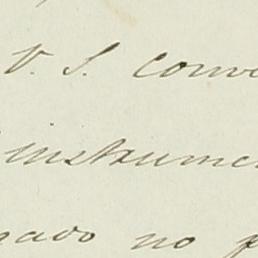 V. S. conve
instrumen
gado no p